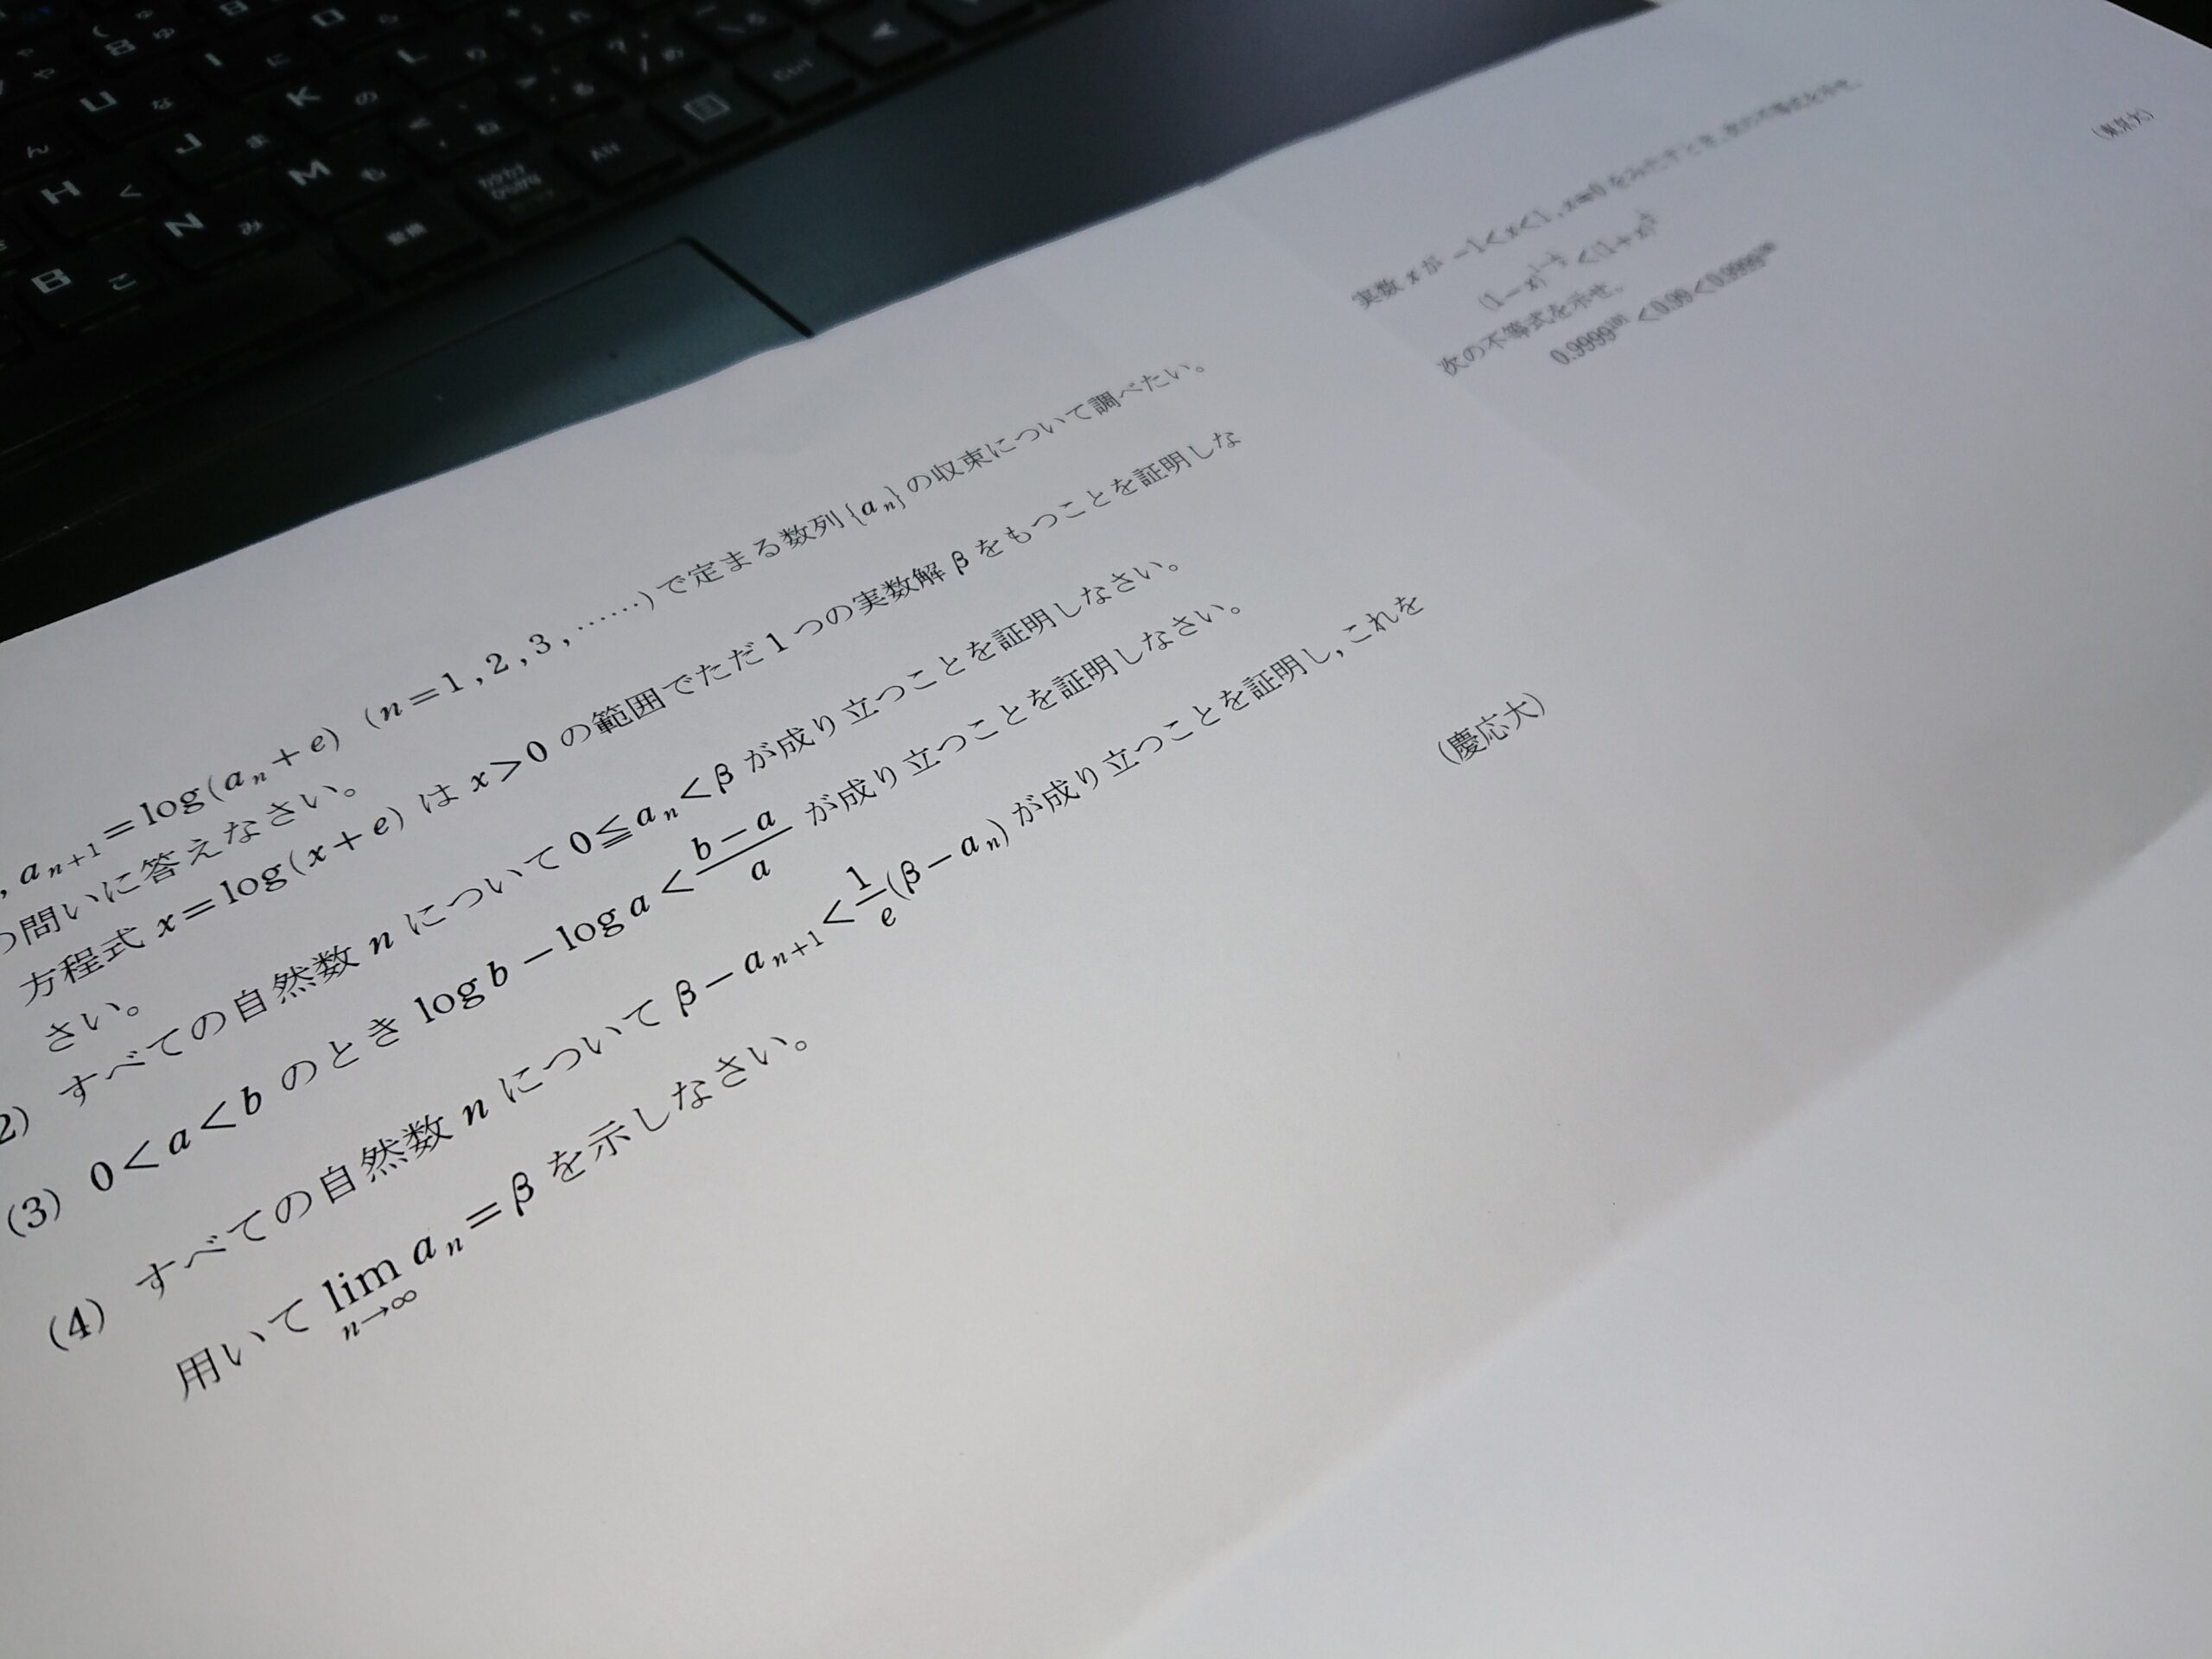 , a n+1 = log(a n + e) (n = 1 , 2 , 3 , ……) で定まる数列 {a n} の収束について調べたい。
問いに答えなさい。
方程式 x = log(x + e) は x > 0 の範囲でただ 1 つの実数解 β をもつことを証明しな
さい。
2) すべての自然数 n について 0 ≦ a n < β が成り立つことを証明しなさい。
(3) 0 < a < b のとき log b − log a < (b − a)/a が成り立つことを証明しなさい。
(4) すべての自然数 n について β − a n+1 < 1/e (β − a n) が成り立つことを証明し, これを
用いて lim n→∞ a n = β を示しなさい。
(慶応大)
実数 x が −1 < x < 1 , x ≠ 0 をみたすとき, 次の不等式を示せ。
次の不等式を示せ。
0.9999^101 < 0.99 < 0.9999^100
(東京大)
U な
I に
K の
L り
H く
J ま
M も
N み
B こ
変換
カタカナ
ひらがな
Alt
Ctrl